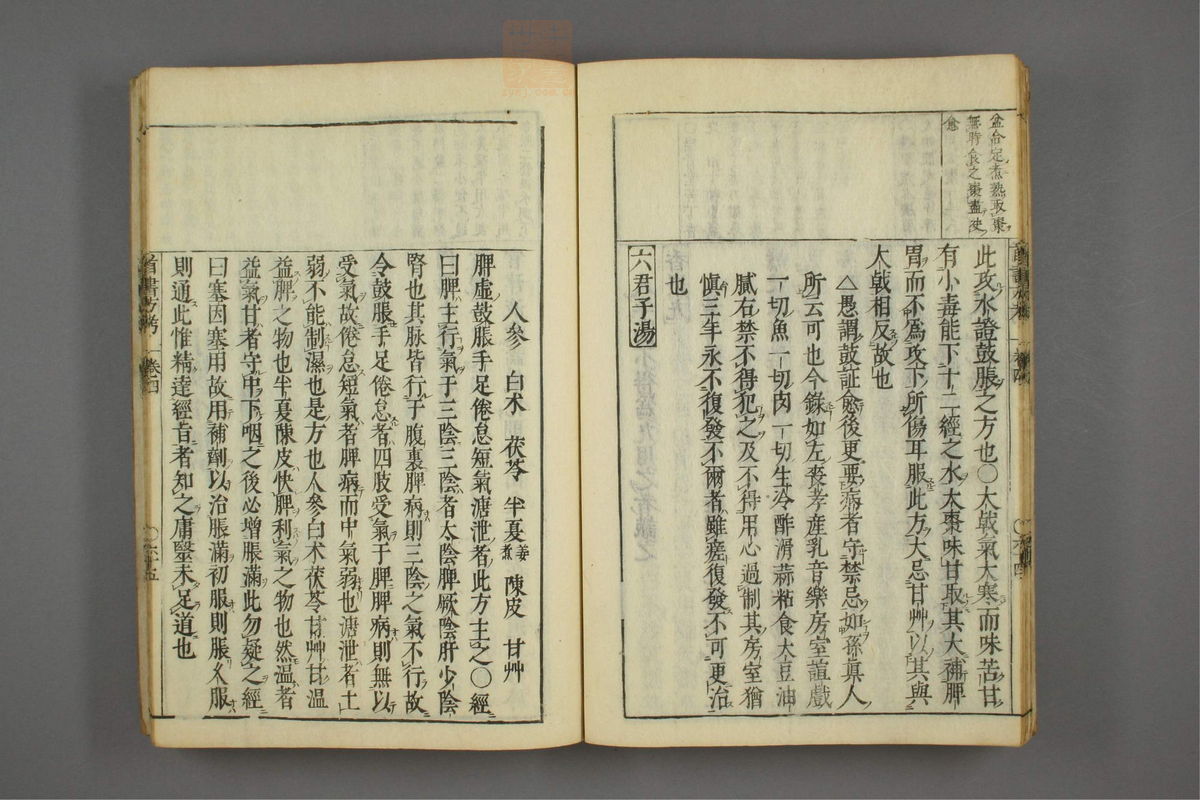 盆合定煮熟取棗
無時食之棗盡決
愈
此攻水證鼓脹之方也〇大戟氣大寒而味苦甘
有小毒能下十二經之水大棗味甘取其大補脾
胃而不爲攻下所傷耳服此方大忌甘艸以其與
大戟相反故也
△愚謂鼓証愈後更要病者守禁忌如孫眞人
所云可也今錄如左喪孝產乳音樂房室諠戲
一切魚一切肉一切生冷酢滑蒜粘食大豆油
膩右禁不得犯之及不得用心過制其房室猶
愼三年永不復發不爾者雖瘥復發不可更治
也
六君子湯
人參 白朮 茯苓 半夏姜煮 陳皮 甘艸
脾虛鼓脹手足倦怠短氣溏泄者此方主之〇經
曰脾主行氣于三陰三陰者太陰脾厥陰肝少陰
腎也其脉皆行于腹裏脾病則三陰之氣不行故
令鼓脹手足倦怠者四肢受氣于脾脾病則無以
受氣故倦怠短氣者脾病而中氣弱也溏泄者土
弱不能制濕也是方也人參白朮茯苓甘艸甘溫
益脾之物也半夏陳皮快脾利氣之物也然溫者
益氣甘者守中下咽之後必增脹滿此勿疑之經
曰塞因塞用故用補劑以治脹滿初服則脹久服
則通此惟精達經旨者知之庸醫未足道也
卷四
〇六十五